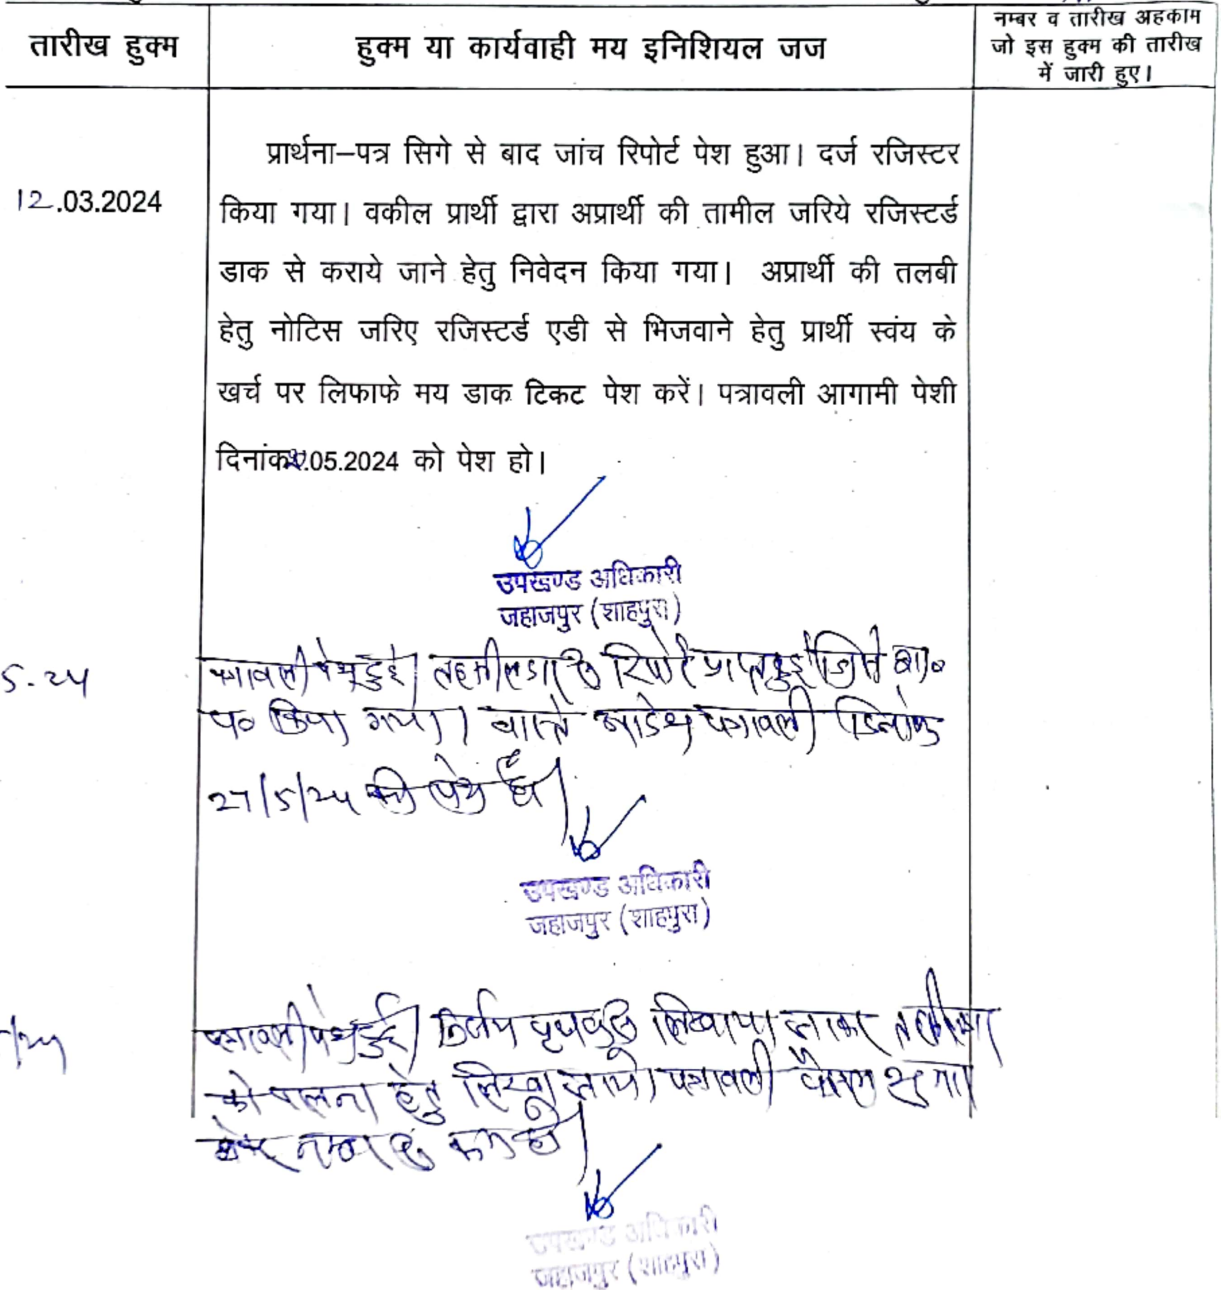 तारीख हुक्म
हुक्म या कार्यवाही मय इनिशियल जज
नम्बर व तारीख अहकाम
जो इस हुक्म की तारीख
में जारी हुए।
प्रार्थना–पत्र सिगे से बाद जांच रिपोर्ट पेश हुआ। दर्ज रजिस्टर
12.03.2024
किया गया। वकील प्रार्थी द्वारा अप्रार्थी की तामील जरिये रजिस्टर्ड
डाक से कराये जाने हेतु निवेदन किया गया। अप्रार्थी की तलबी
हेतु नोटिस जरिए रजिस्टर्ड एडी से भिजवाने हेतु प्रार्थी स्वंय के
खर्च पर लिफाफे मय डाक टिकट पेश करें। पत्रावली आगामी पेशी
दिनांक .05.2024 को पेश हो।
उपखण्ड अधिकारी
जहाजपुर (शाहपुरा)
5-24
पत्रावली पेश हुई। तहसीलदार रिपोर्ट प्राप्त हुई जिसे शा०
प० किया गया। वास्ते आदेश पत्रावली दिनांक
27/5/24 को पेश हो।
उपखण्ड अधिकारी
जहाजपुर (शाहपुरा)
/24
पत्रावली पेश हुई। निर्णय पृथक से लिखाया जाकर तहसीलदार
को पालना हेतु लिखा जावे। पत्रावली फैसल शुमार
होकर नम्बर से कम हो।
उपखण्ड अधिकारी
जहाजपुर (शाहपुरा)